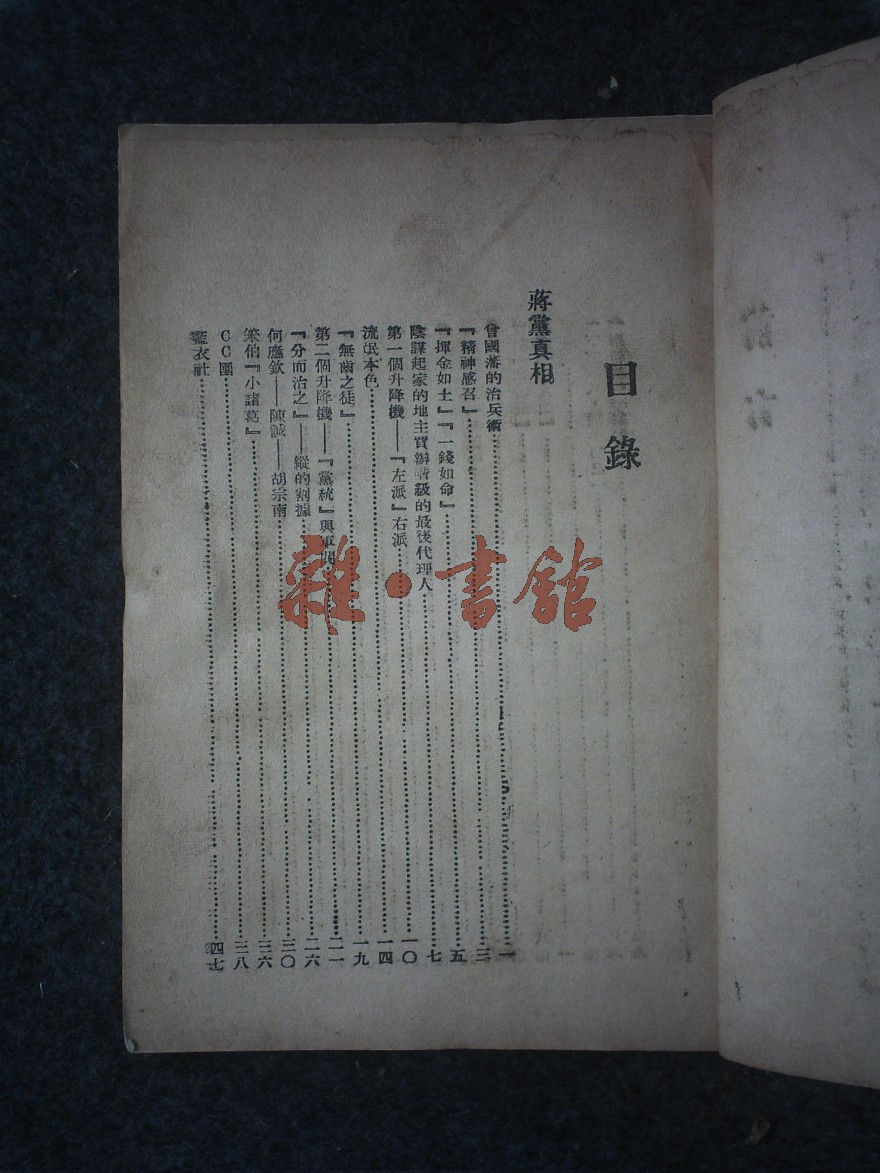 目錄
蔣黨真相
曾國藩的治兵術……一
『精神感召』……三
『揮金如土』『一錢如命』……五
陰謀起家的地主買辦階級的最後代理人……七
第一個升降機——『左派』右派……一〇
流氓本色……一四
『無齒之徒』……一九
第二個升降機——『黨統』與軍閥……二一
『分而治之』——縱的割據……二六
何應欽——陳誠——胡宗南……三〇
笨伯『小諸葛』……三六
CC團……三八
藍衣社……四七
雜·書館